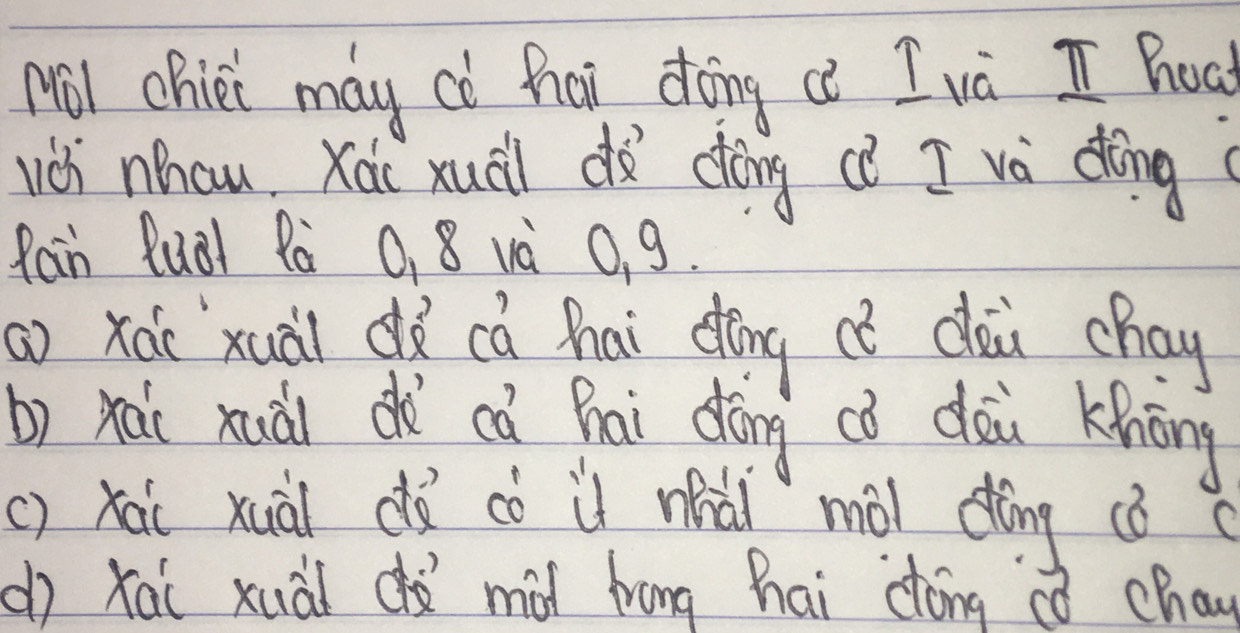 Một chiếc máy có hai động cơ I và II hoạt
với nhau. Xác xuất để động cơ I và động c
lần lượt là 0,8 và 0,9.
a) Xác xuất để cả hai động cơ đều chạy
b) Xác xuất để cả hai động cơ đều không
c) Xác xuất để có ít nhất một động cơ c
d) Xác xuất để một trong hai động cơ chạy